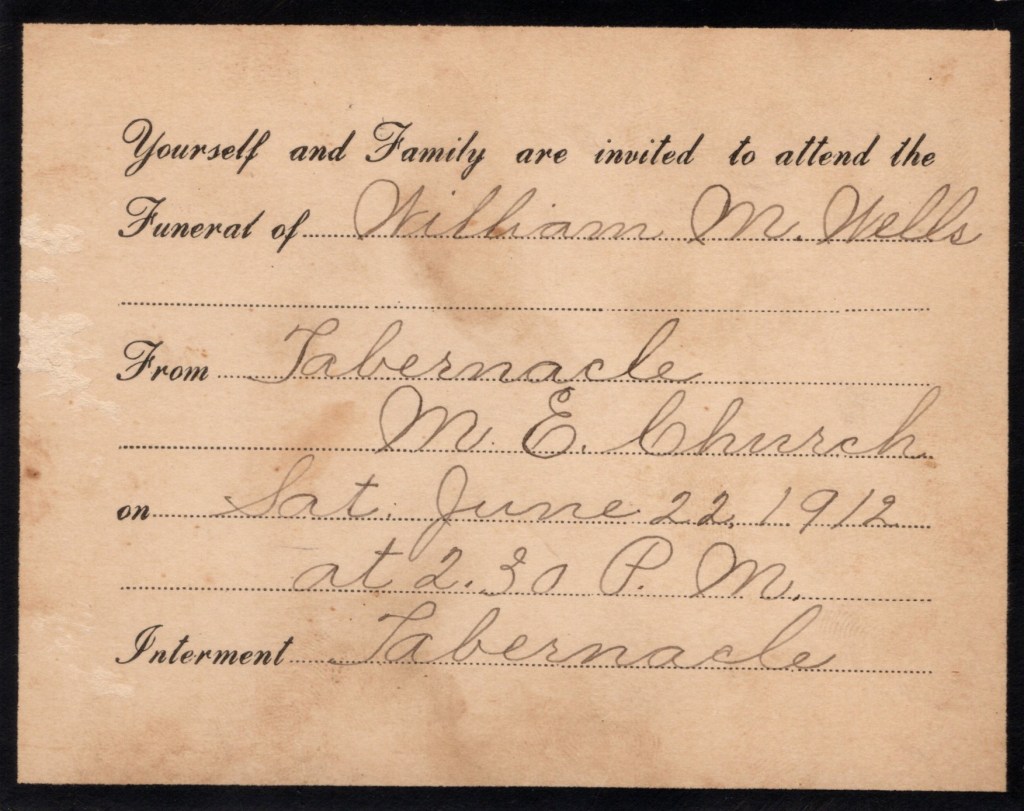 Yourself and Family are invited to attend the
Funeral of William M. Wells
From Tabernacle
M. E. Church
on Sat. June 22, 1912
at 2.30 P. M.
Interment Tabernacle